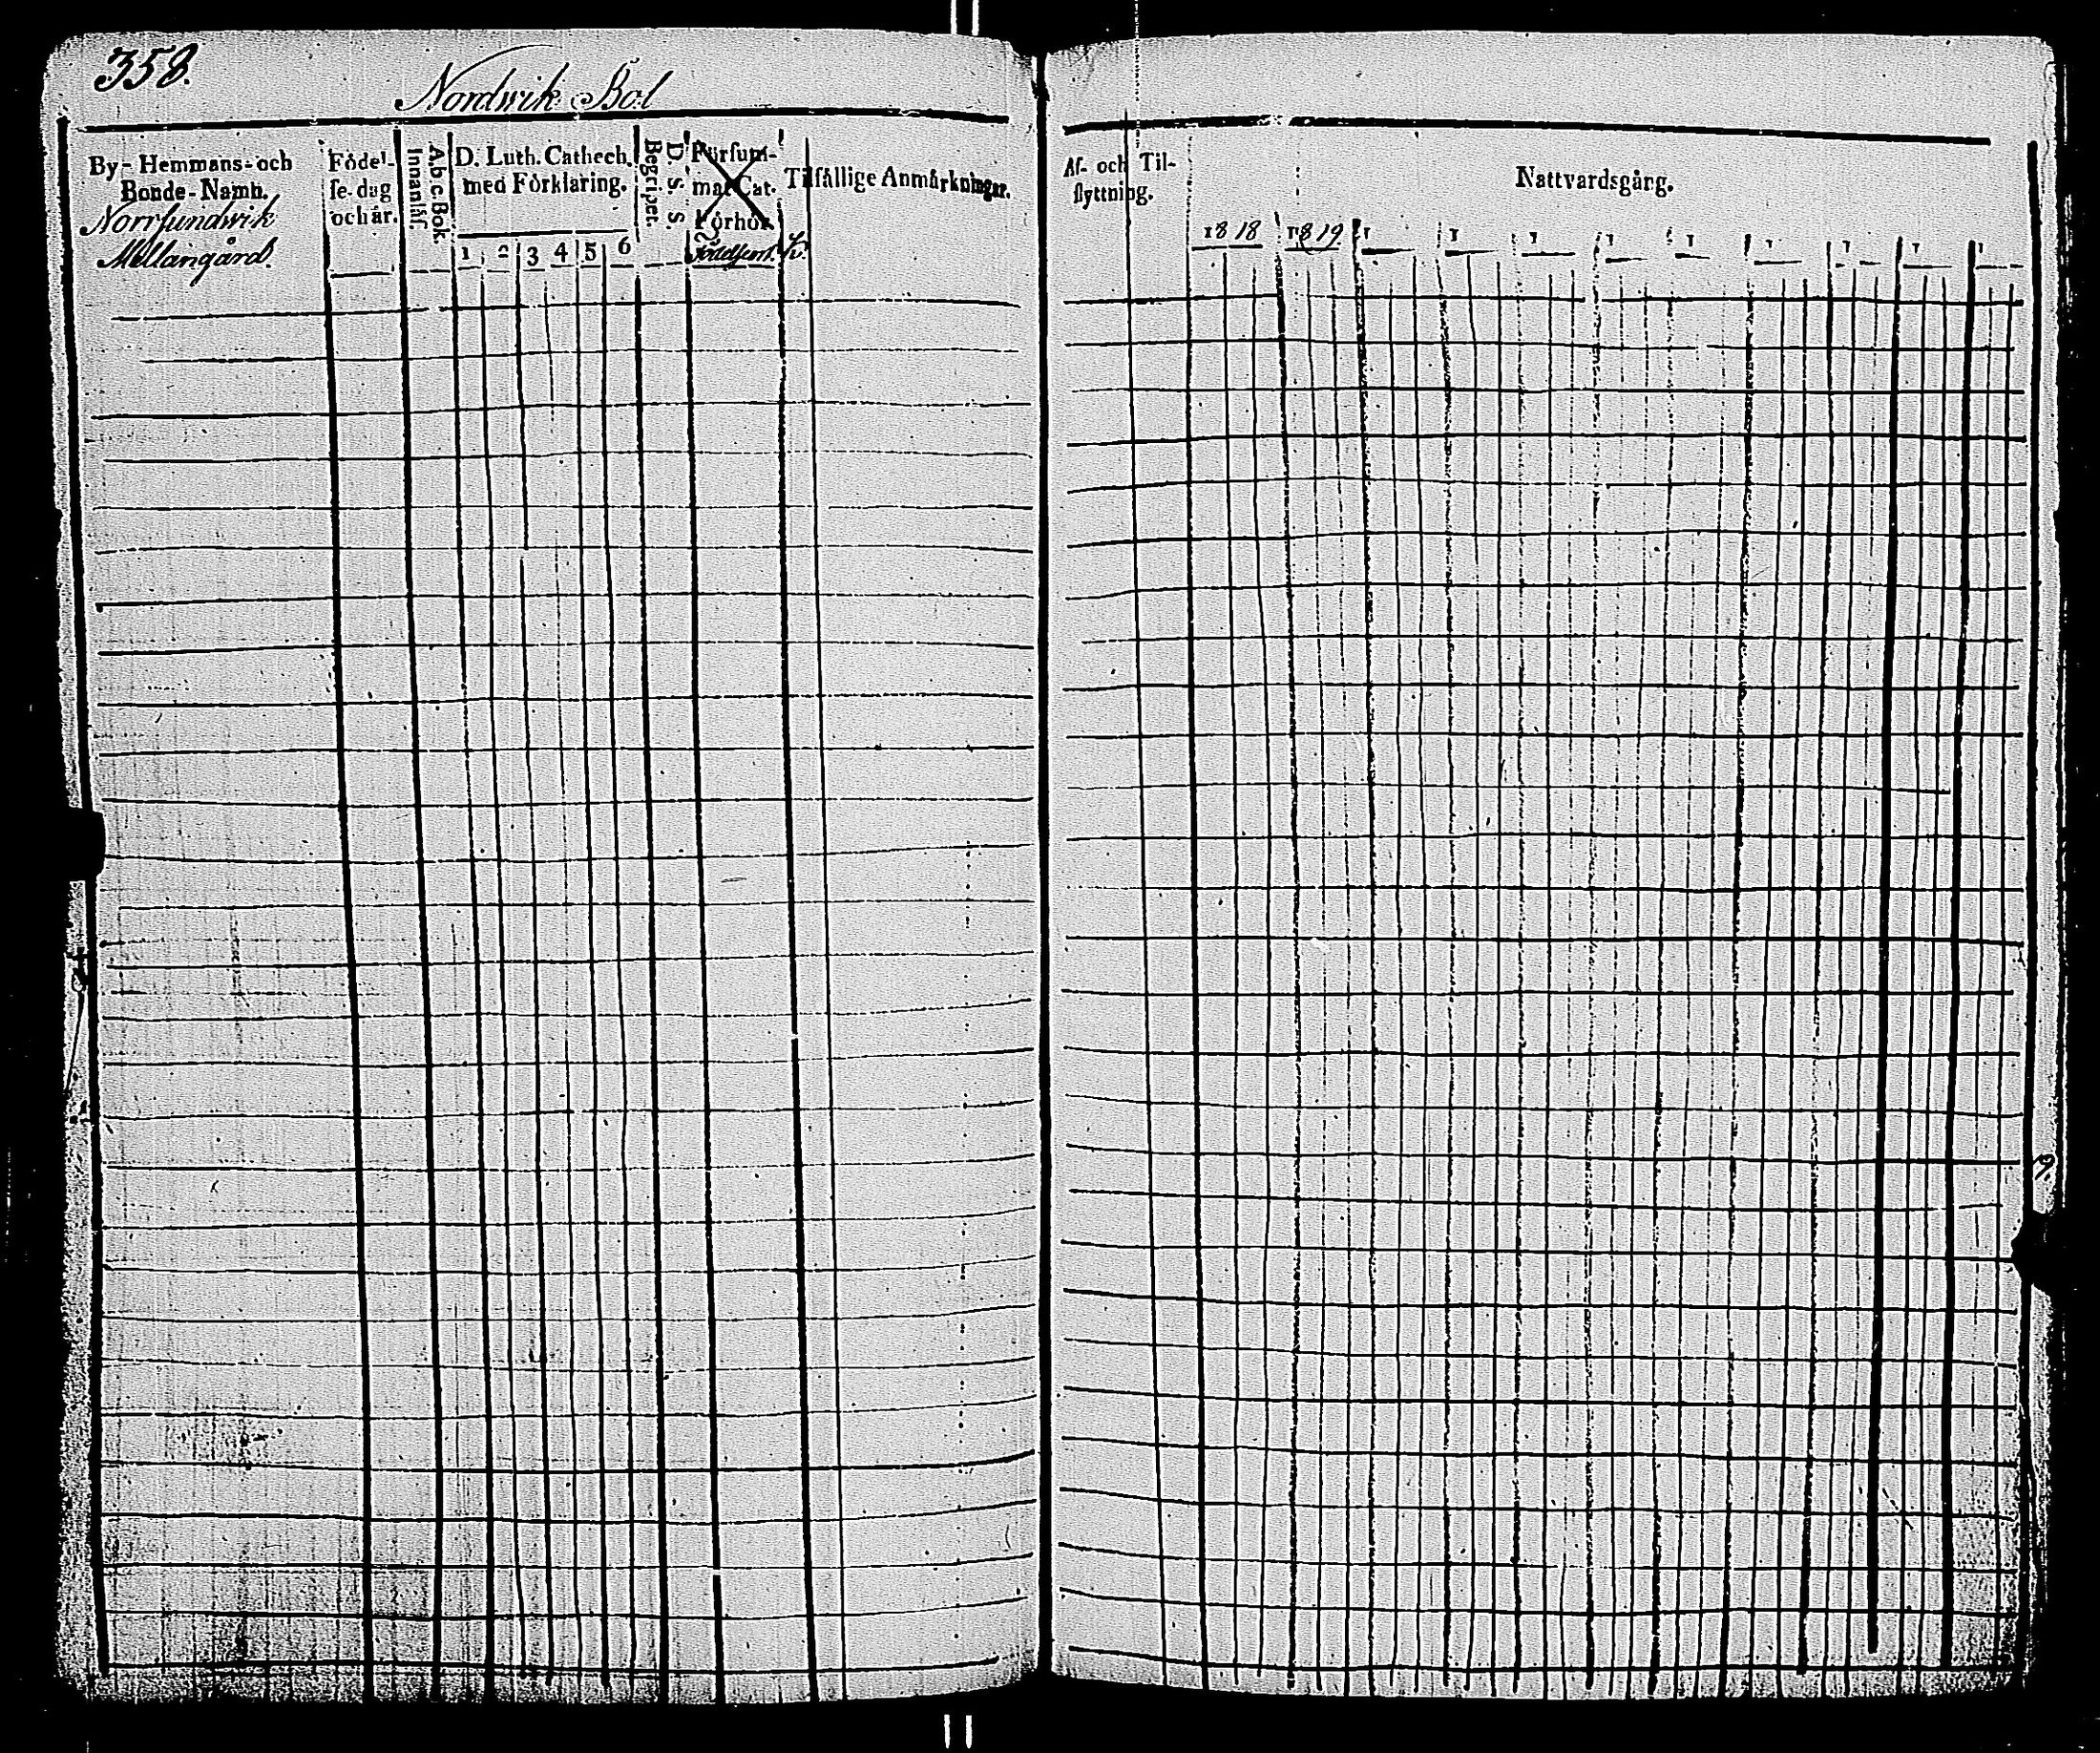 358.
Nordwik Bol
By- Hemmans- och
Bonde-Namn.
Norrsundwik
Mellangård.
Födel-
se-dag
och år.
A b c Bok.
Innanläs.
D. Luth. Cathech.
med Förklaring.
1 2 3 4 5 6
Begripet.
D. S. S.
Försum-
mat Cat.
Förhör
Tilfällige Anmärkningar.
Af- och Til-
flyttning.
Nattvardsgång.
1818 1819 1 1 1 1 1 1 1 1 1